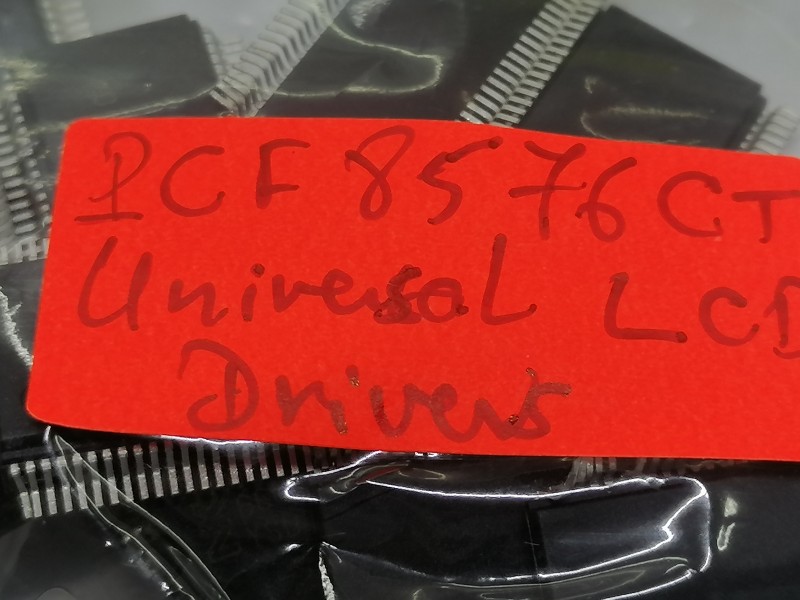 PCF 8576 CT
Universal LCD
Drivers